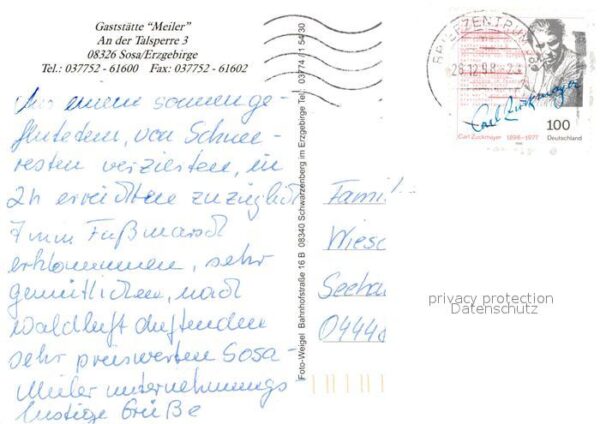 Gaststätte "Meiler"
An der Talsperre 3
08326 Sosa/Erzgebirge
Tel.: 037752 - 61600 Fax: 037752 - 61602
einem sonnenge-
fluteten, von Schnee-
resten verzierten, in
2h erreichten zuzüglich
7 min Fußmarsch
erklommenen, sehr
gemütlichen, nach
Waldluft duftenden
sehr preiswerten Sosa-
Meiler unternehmungs-
lustige Grüße
Foto-Weigel Bahnhofstraße 16 B 08340 Schwarzenberg im Erzgebirge Tel. 03774 / 1 54 30
BRIEFZENTRUM
26.12.98
Carl Zuckmayer
100
Carl Zuckmayer 1896-1977
Deutschland
Famil
Wiesc
Seeha
0444
privacy protection
Datenschutz